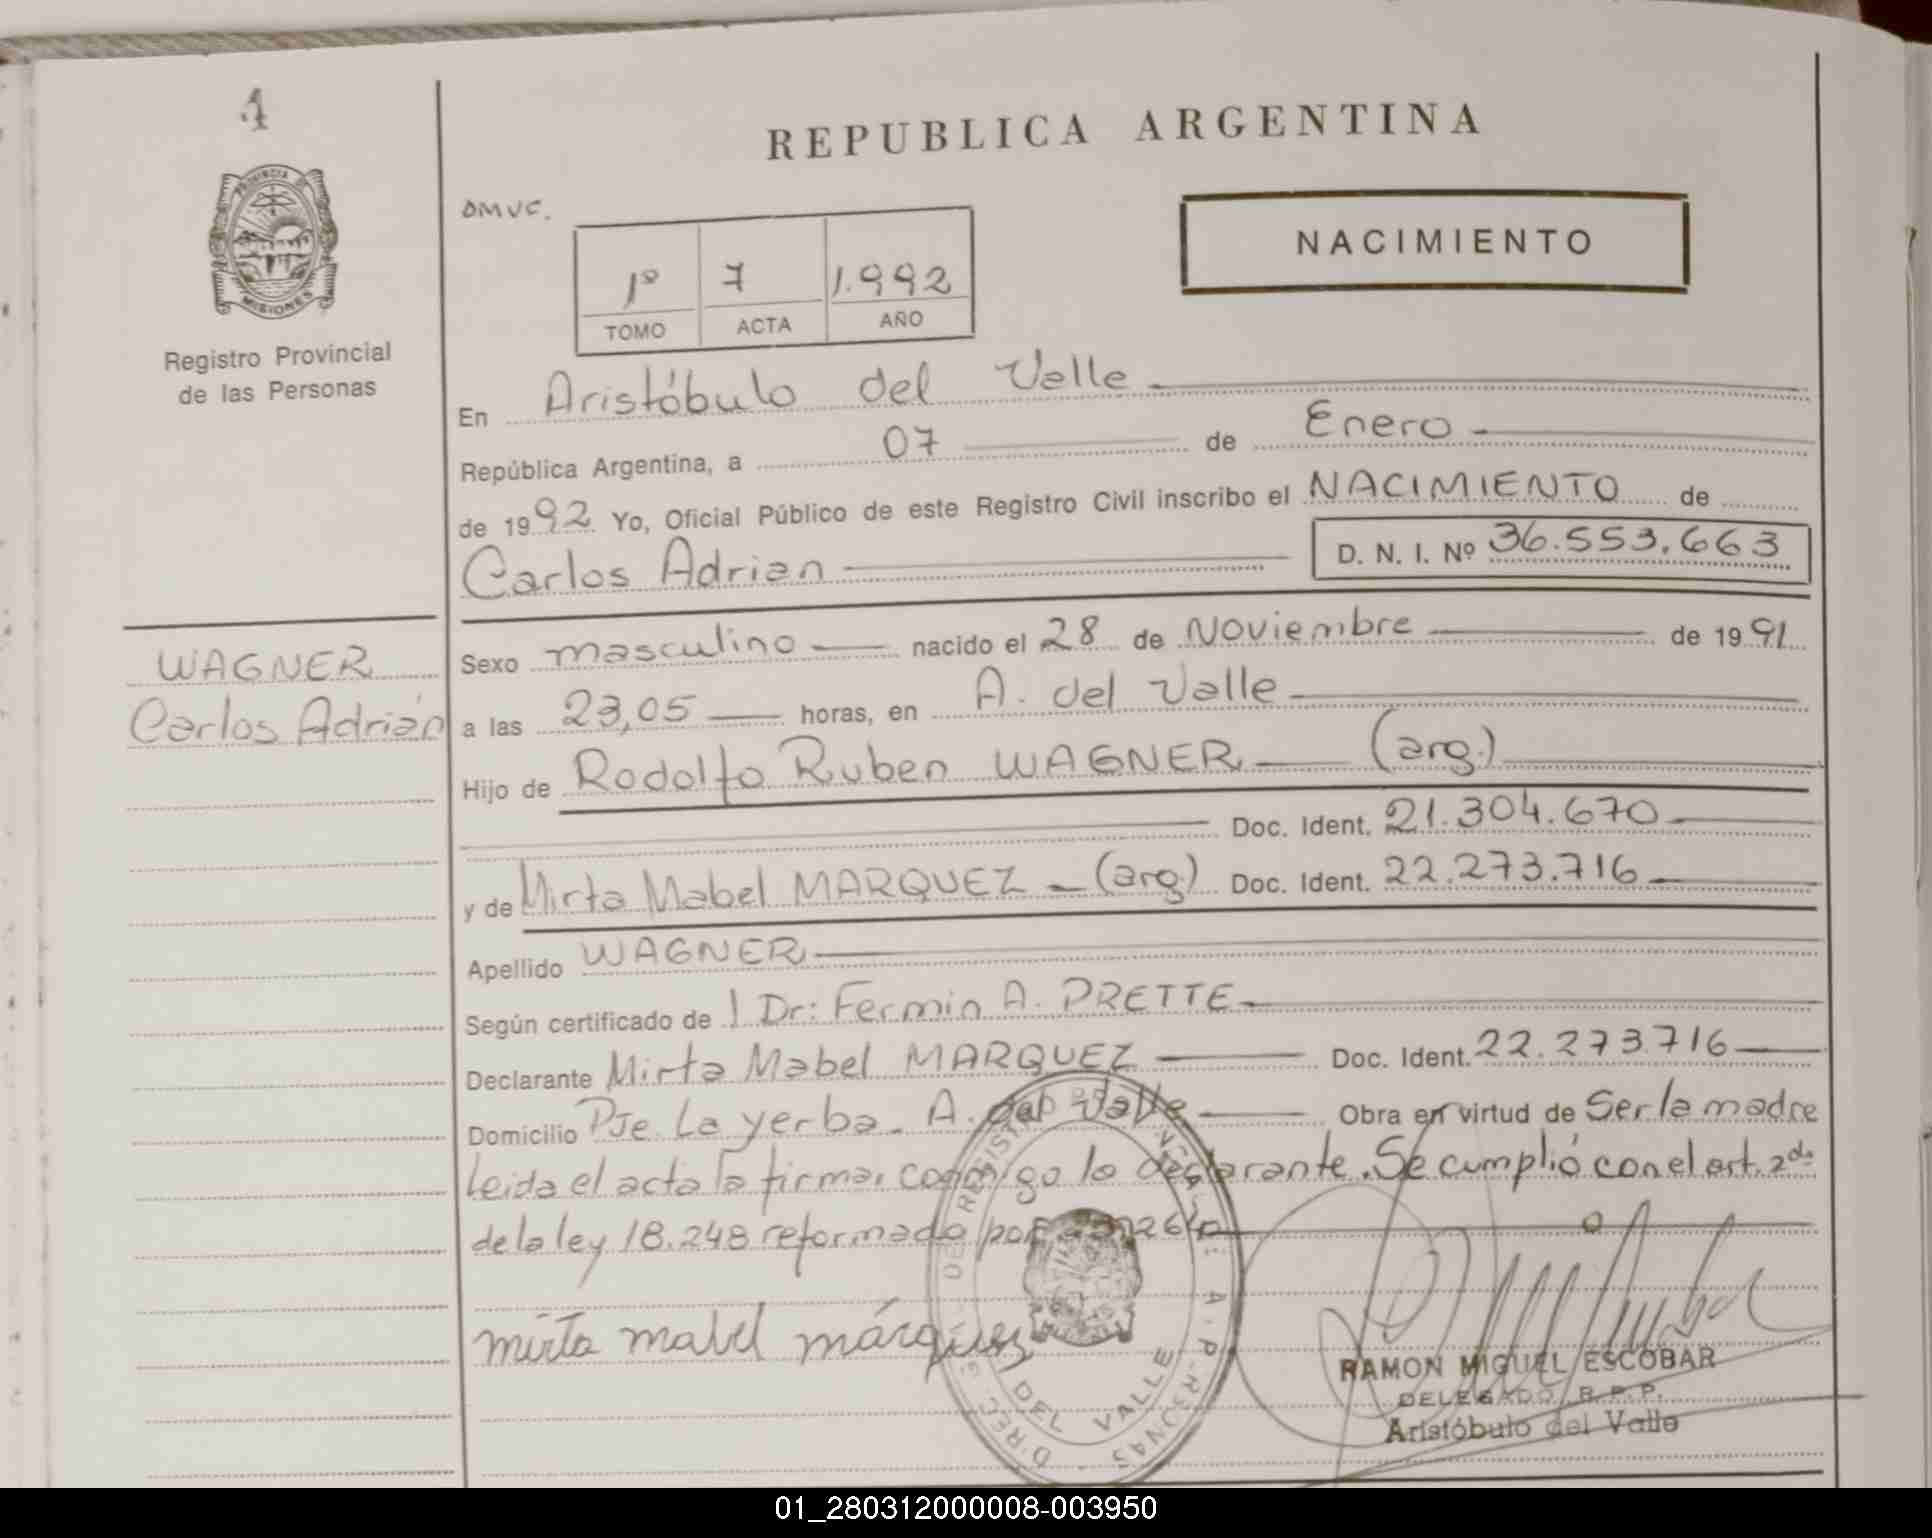 4
REPUBLICA ARGENTINA
PROVINCIA DE
MISIONES
Registro Provincial
de las Personas
OMVC.
1º 7 1.992
TOMO ACTA AÑO
NACIMIENTO
En Aristóbulo del Valle
República Argentina, a 07 de Enero
de 1992 Yo, Oficial Público de este Registro Civil inscribo el NACIMIENTO de
Carlos Adrian D. N. I. Nº 36.553.663
WAGNER
Carlos Adrián
Sexo masculino nacido el 28 de Noviembre de 1991
a las 23,05 horas, en A. del Valle
Hijo de Rodolfo Ruben WAGNER (arg.)
Doc. Ident. 21.304.670
y de Mirta Mabel MARQUEZ (arg) Doc. Ident. 22.273.716
Apellido WAGNER
Según certificado de l Dr: Fermin A. PRETTE
Declarante Mirta Mabel MARQUEZ Doc. Ident. 22.273.716
Domicilio Pje. La yerba. A. del Valle Obra en virtud de Ser la madre
Leida el acta la firma, conmigo la declarante. Se cumplió con el art. 2do
de la ley 18.248 reformado por
mirta mabel márquez
DEL VALLE
RAMON MIGUEL ESCOBAR
DELEGADO R.P.P.
Aristóbulo del Valle
01_280312000008-003950